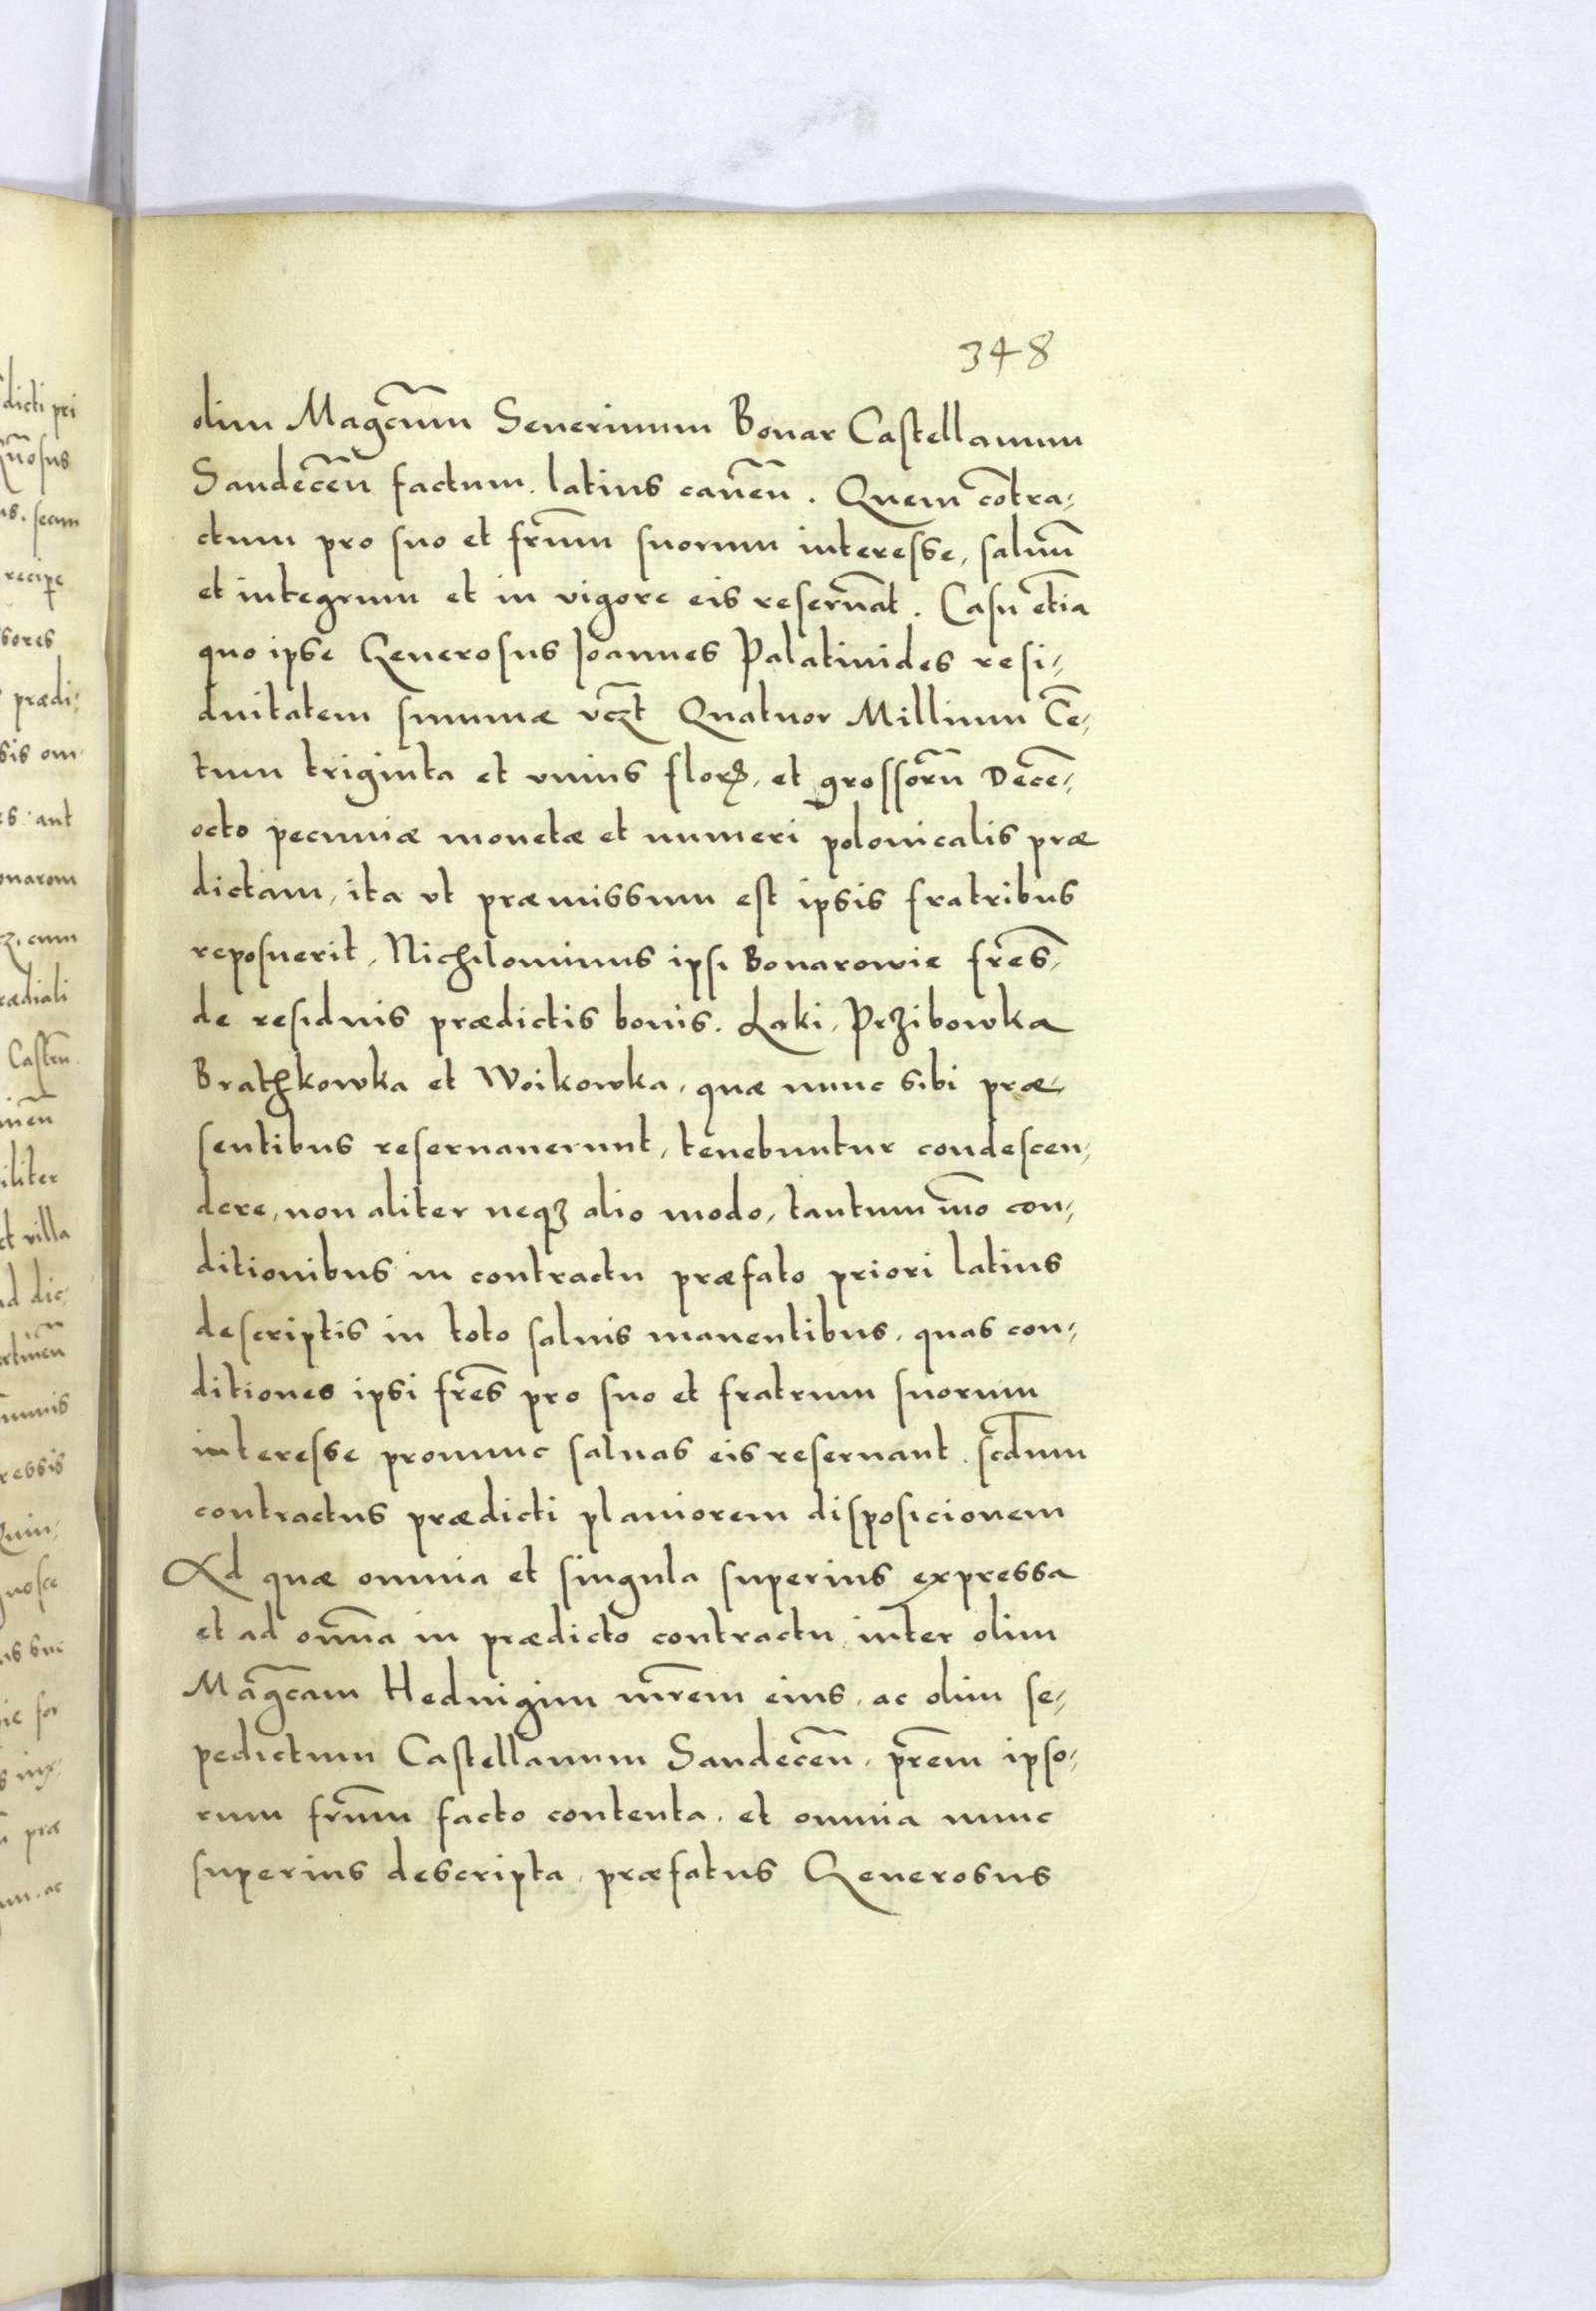 348
olim Magcum Seuerinum Bonar Castellanum
Sandecen factum. latius cauen. Quem contra-
ctum pro suo et frum suorum interesse, saluu
et integrum et in vigore eis reseruat. Casu etia
quo ipse Generosus Joannes Palatinides resi-
duitatem summæ vczt Quatuor Millium Ce-
tum triginta et vnius floꝝ, et grossoru Dece-
octo pecuniæ monetæ et numeri polonicalis præ
dictam, ita vt præmissum est ipsis fratribus
reposuerit, Nichilominus ipsi Bonarowie fres,
de residuis prædictis bonis. Laki, Przibowka
Brathkowka et Woikowka, quæ nunc sibi præ-
sentibus reseruauerunt, tenebuntur condescen-
dere, non aliter neqꝫ alio modo, tantum imo con-
ditionibus in contractu præfato priori latius
descriptis in toto saluis manentibus, quas con-
ditiones ipsi fres pro suo et fratrum suorum
interesse pronunc saluas eis reseruant. scdum
contractus prædicti planiorem disposicionem
Ad quæ omnia et singula superius expressa
et ad omna in prædicto contractu inter olim
Magcam Heduigim mrem eius, ac olim se-
pedictum Castellanum Sandecen, prem ipso-
rum frum facto contenta, et omnia nunc
superius descripta, præfatus Generosus